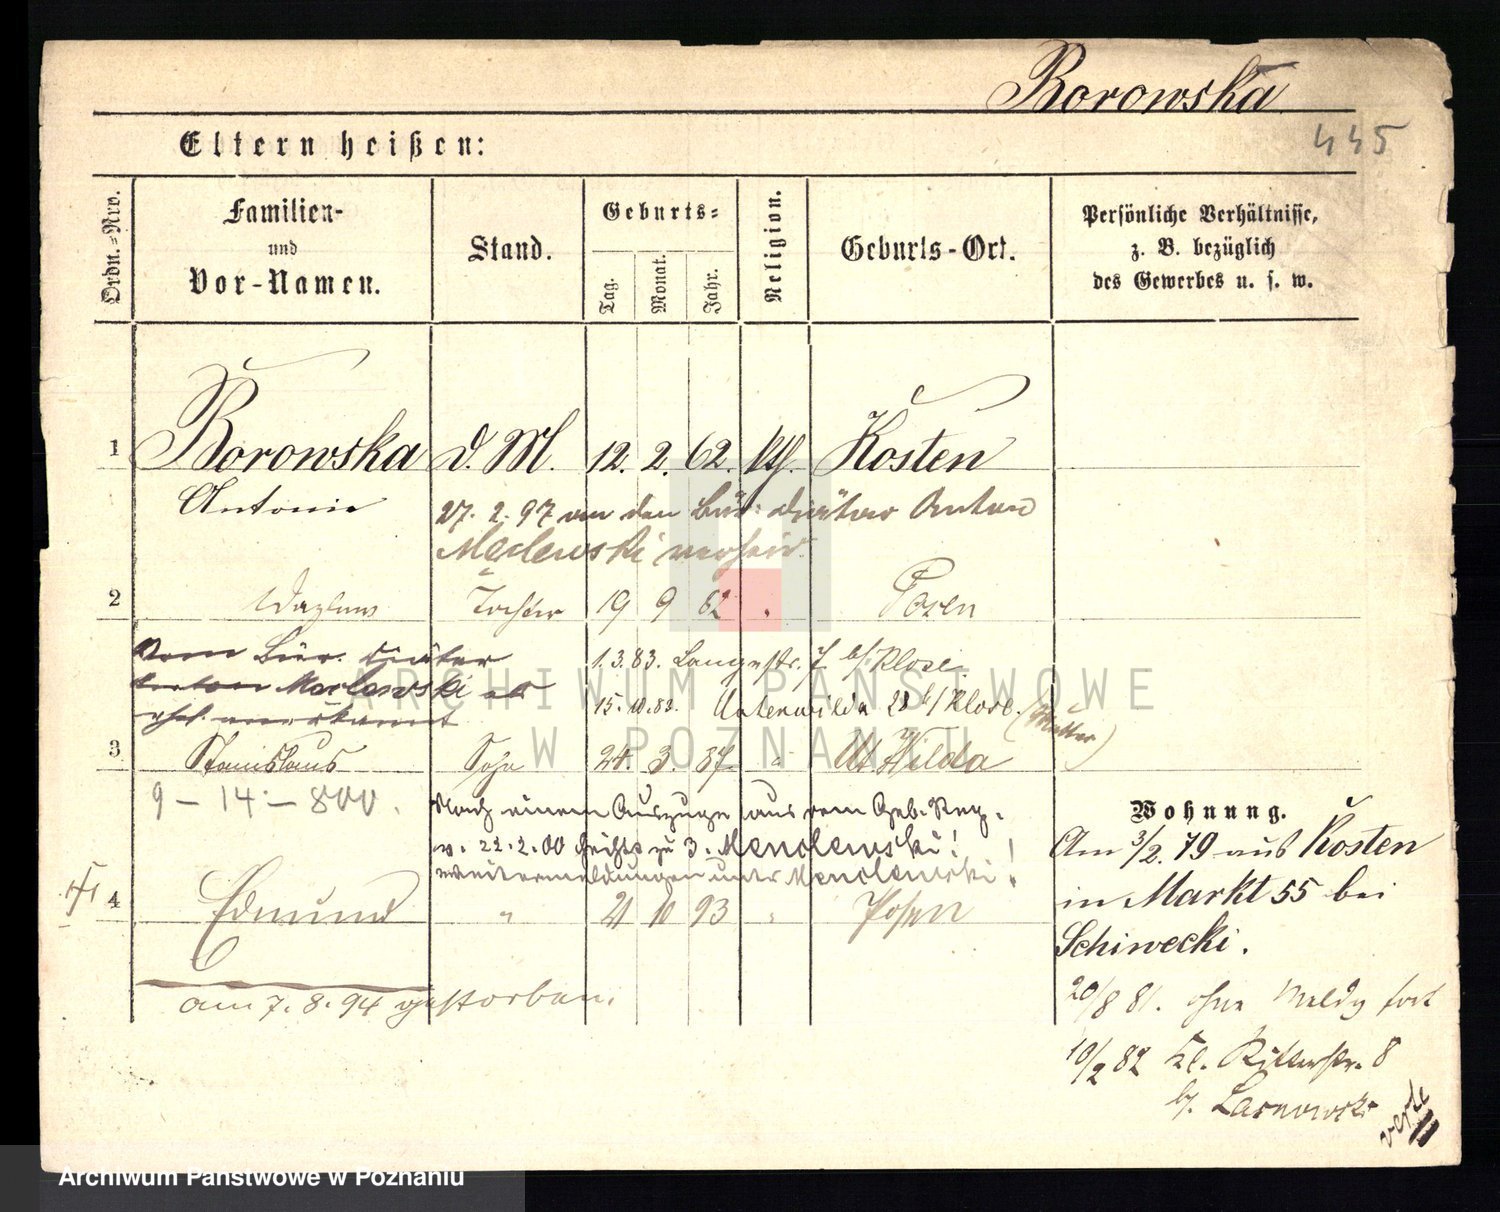 Borowska
445
Eltern heißen:
Ordn.-Nro.
Familien-
und
Vor-Namen.
Stand.
Geburts-
Tag.
Monat.
Jahr.
Religion.
Geburts-Ort.
Persönliche Verhältnisse,
z. B. bezüglich
des Gewerbes u. s. w.
1 Borowska d. M. 12. 2. 62. kth. Kosten
Antonie 27. 2. 97 an den Bür: diätar Anton
verheir.
2 Tochter 19 9 82 " Posen
Vom Bür. Diätar
1. 3. 83. Langestr. 7 b/ Klose
Anton als
15. 10. 83. Unterwilda 28 b/ Klose. (Mutter)
anerkannt
3 Stanislaus Sohn 24. 3. 87 " U. Wilda
9 – 14 – 800.
Nach einem Auszuge aus dem Geb. Reg.
v. 22. 2. 00 heißt zu 3. Menclewski!
weitermeldungen unter Menclewski!
4 Edmund " 21 10 93 " Posen
am 7. 8. 94 gestorben.
Wohnung.
Am 3/2. 79 aus Kosten
in Markt 55 bei
Schiwecki.
20/8 81. ohne Meldg fort
10/2 82 Kl. Ritterstr. 8
verte
ARCHIWUM PAŃSTWOWE
W POZNANIU
Archiwum Państwowe w Poznaniu